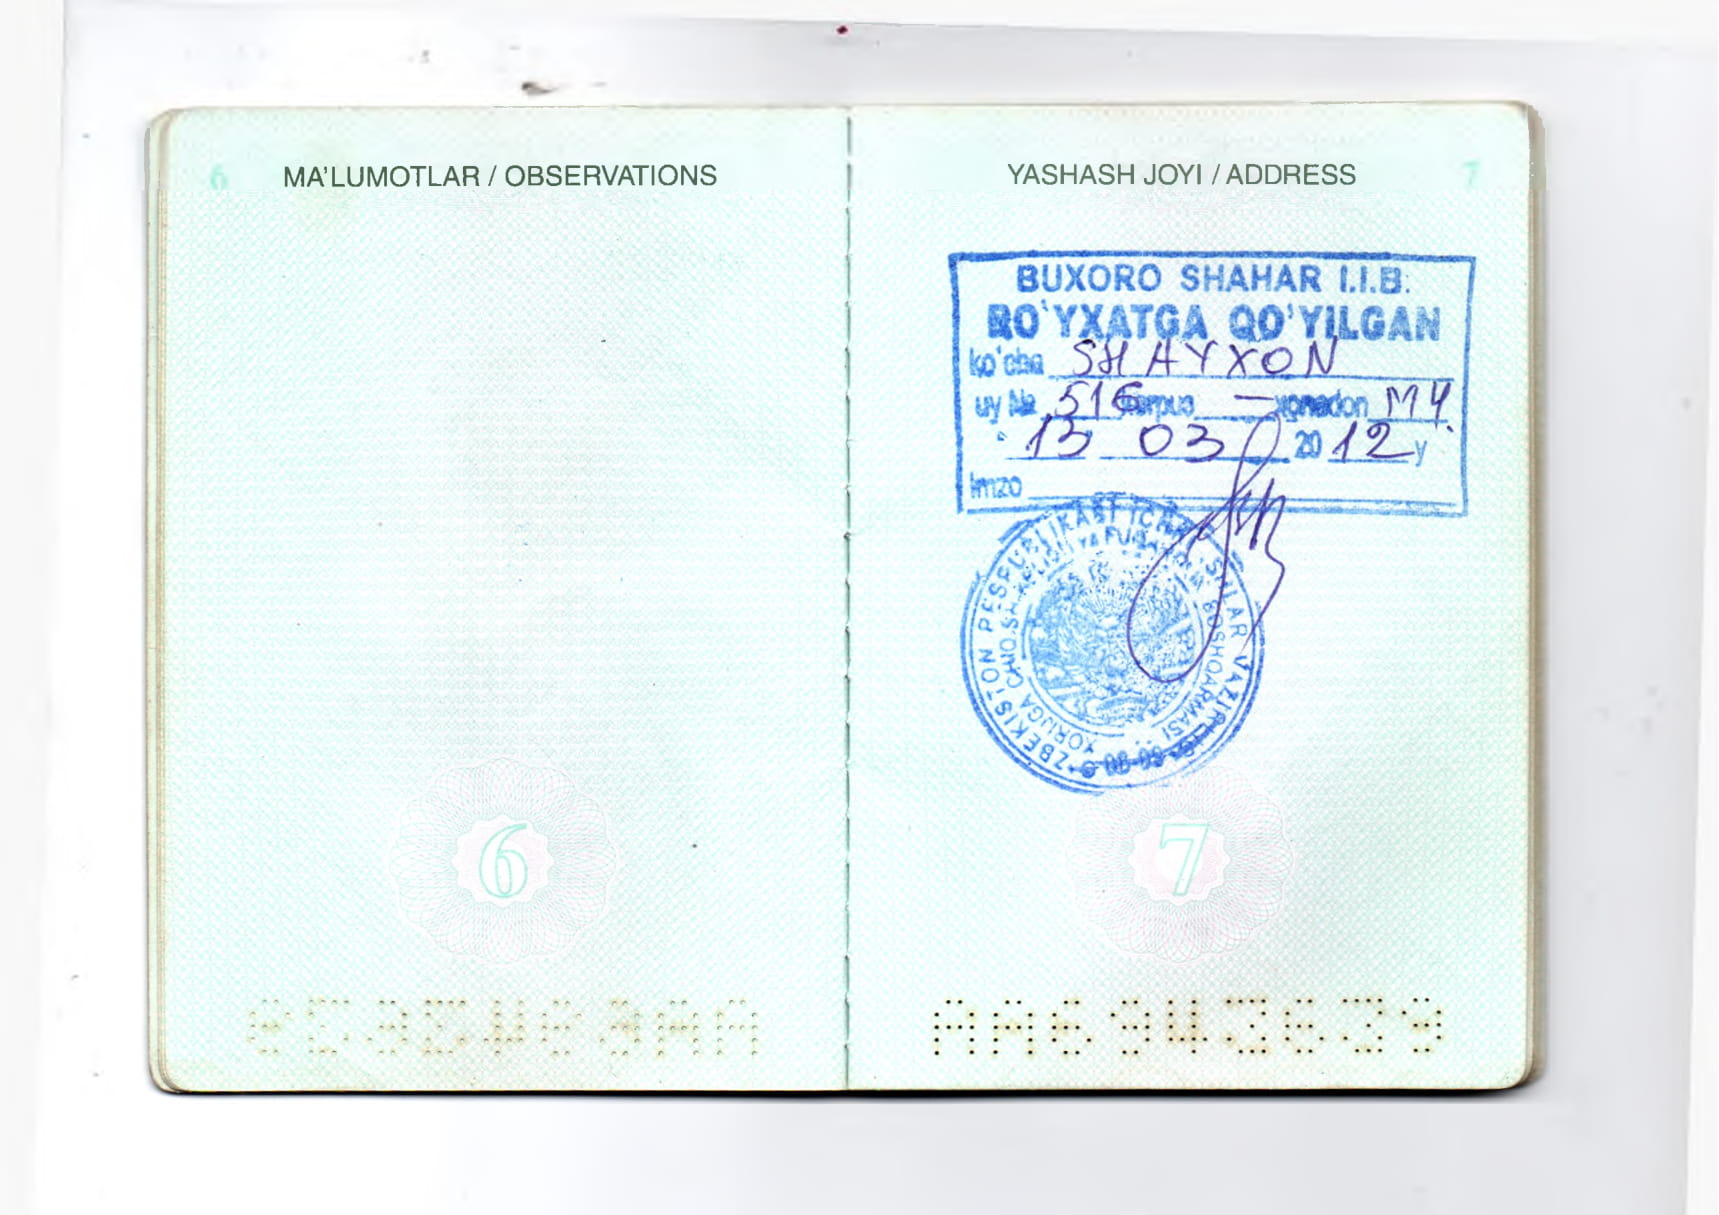 6 MA'LUMOTLAR / OBSERVATIONS
6
YASHASH JOYI / ADDRESS 7
BUXORO SHAHAR I.I.B.
RO'YXATGA QO'YILGAN
ko'cha SHAYXON
uy № 516 korpus — xonadon MЧ
13 03 2012 y
Imzo
O'ZBEKISTON RESPUBLIKASI ICHKI ISHLAR VAZIRLIGI
XORIJGA CHIQISH BOSHQARMASI
7
AA6943639